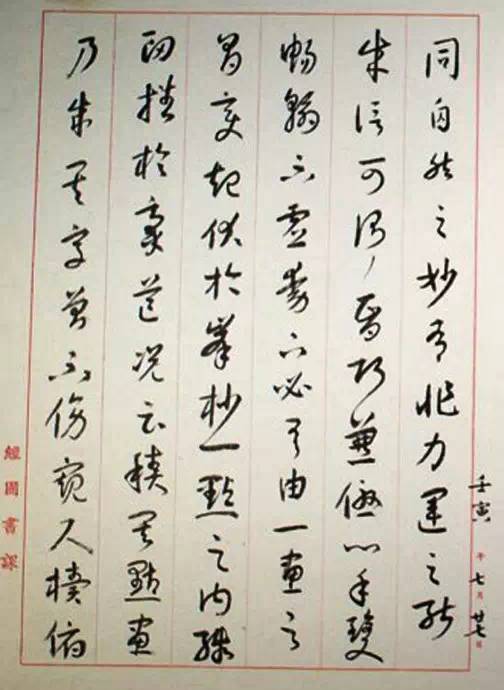 同自然之妙有非力運之能
成信可謂智巧兼優心手雙
暢翰不虛動下必有由一畫之
間變起伏於峯杪一點之內殊
衄挫於豪芒況云積其點畫
乃成其字曾不傍窺尺牘俯
壬寅年七月廿七日
經書課